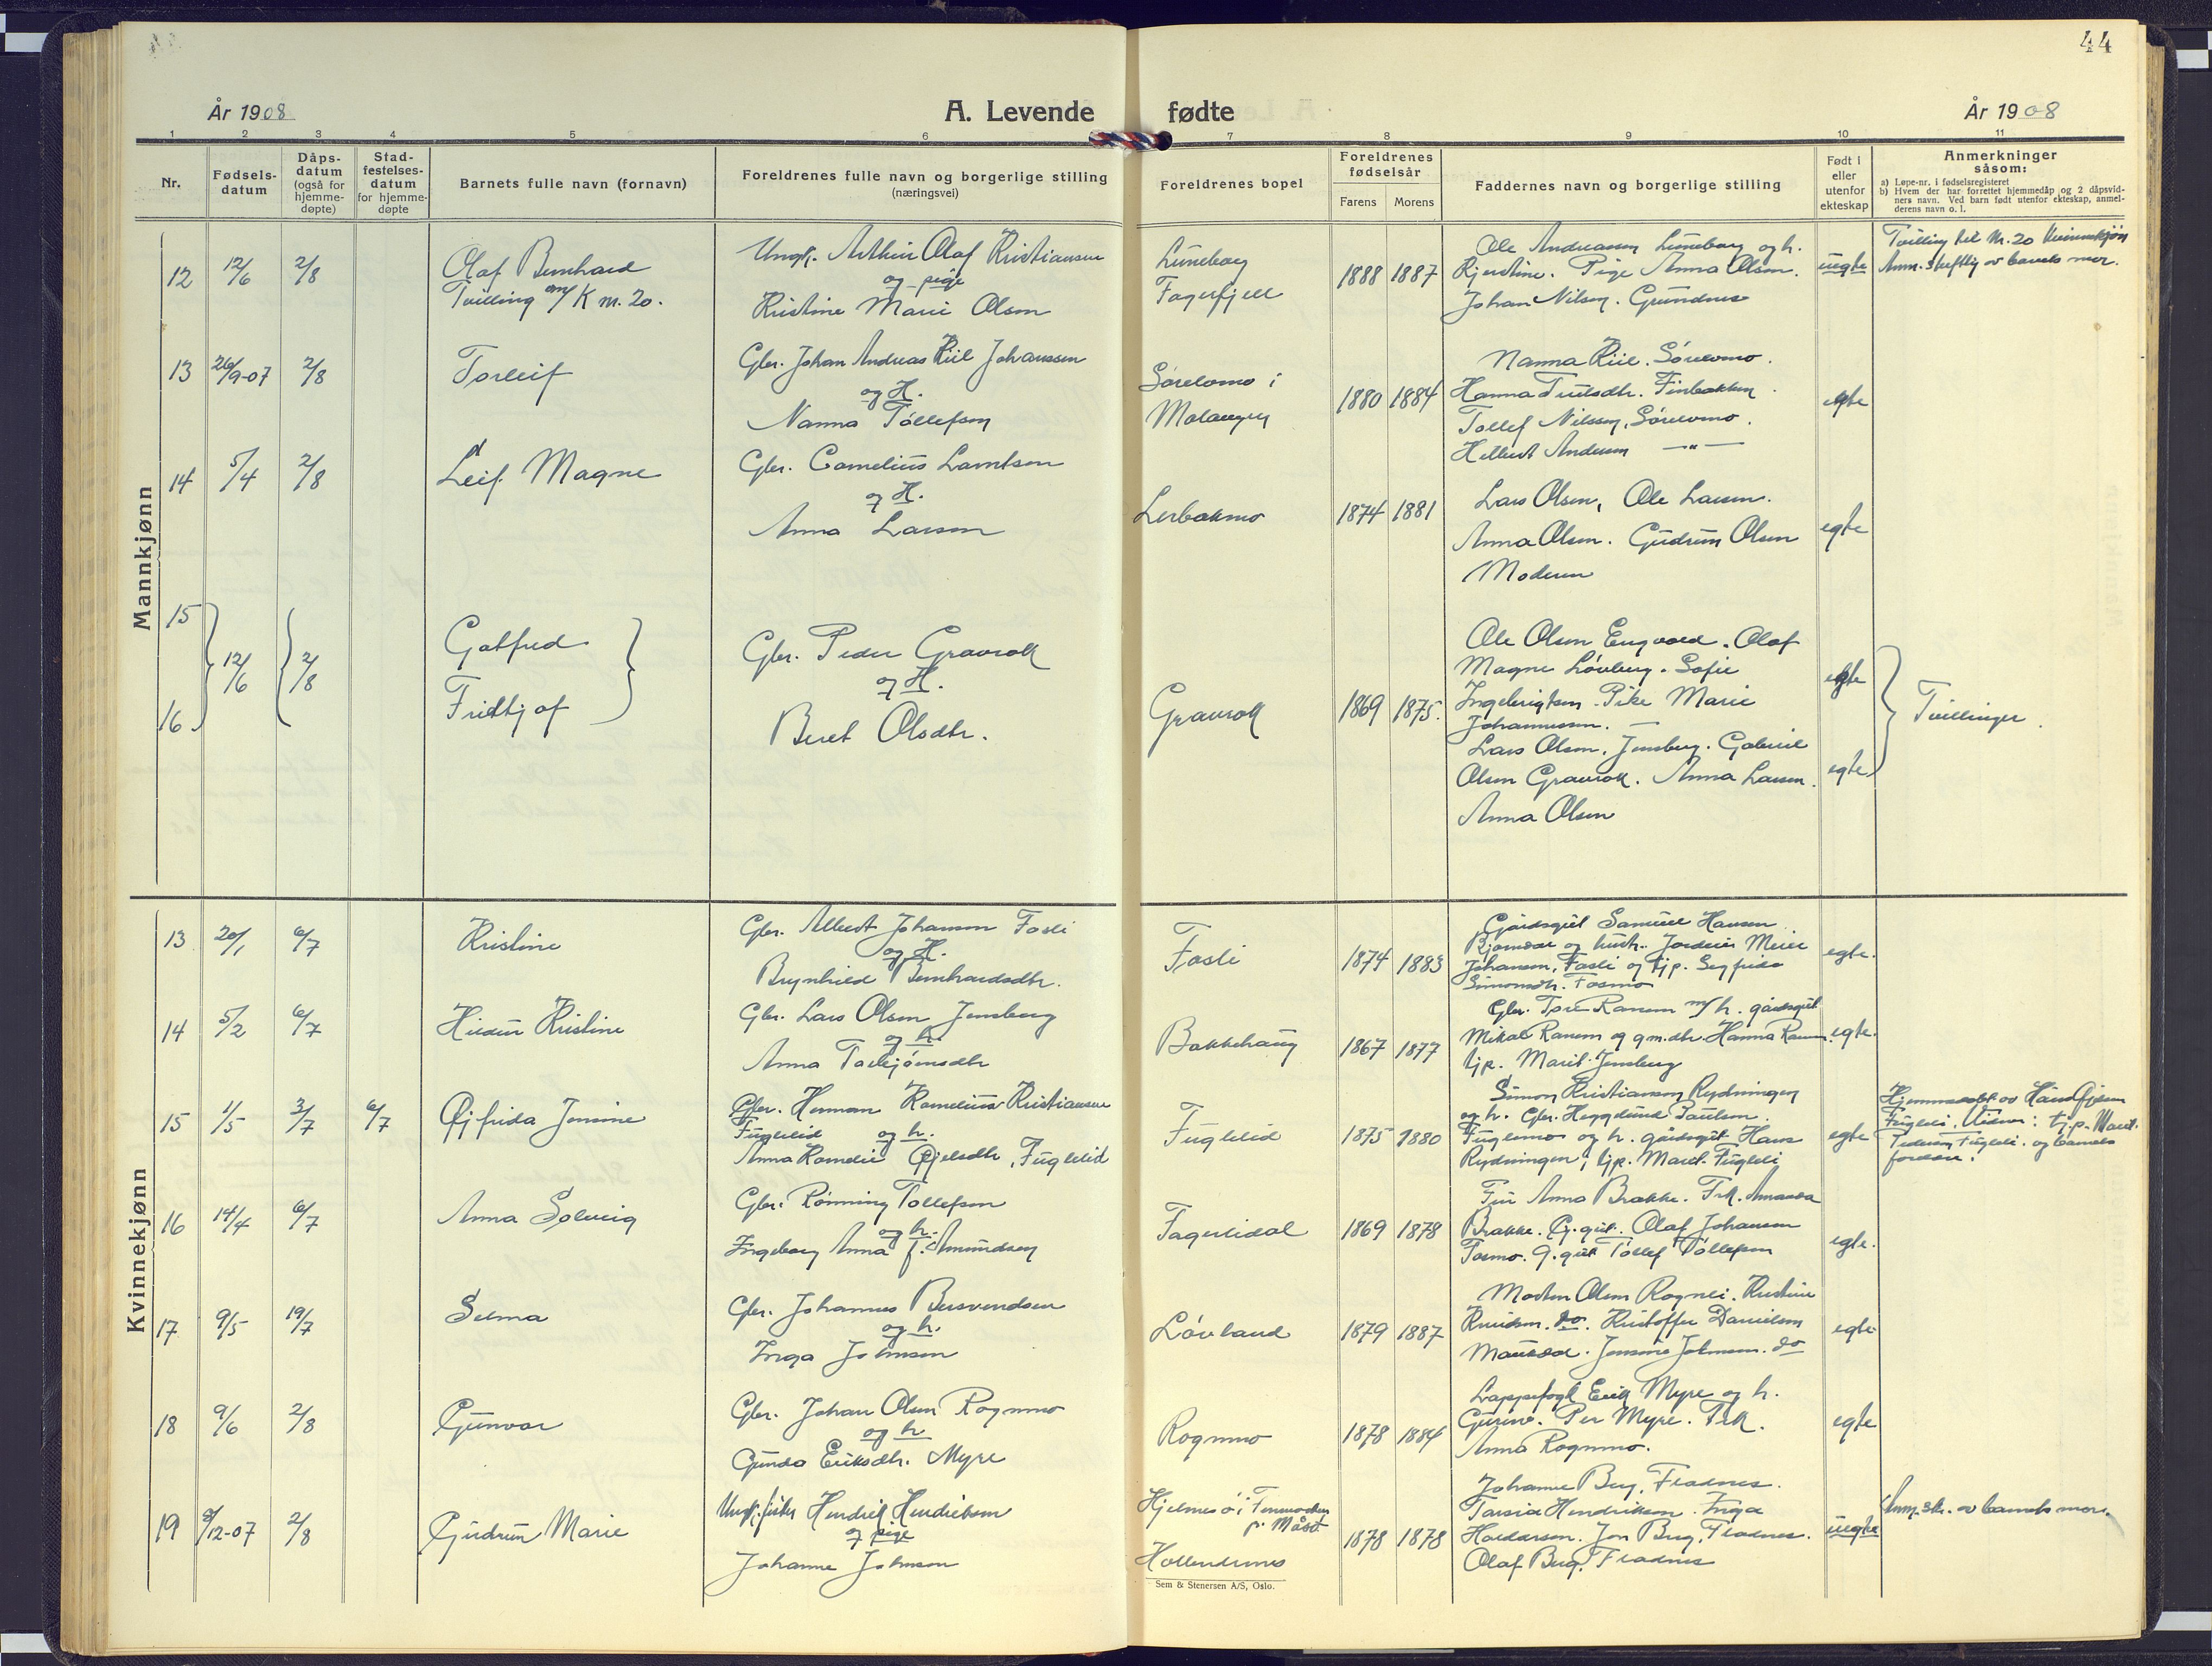 44
År 1908
A. Levende fødte
År 1908
1 2 3 4 5 6 7 8 9 10 11
Nr.
Fødsels-
datum
Dåps-
datum
(også for
hjemme-
døpte)
Stad-
festelses-
datum
for hjemme-
døpte
Barnets fulle navn (fornavn)
Foreldrenes fulle navn og borgerlige stilling
(næringsvei)
Foreldrenes bopel
Foreldrenes
fødselsår
Farens Morens
Faddernes navn og borgerlige stilling
Født i
eller
utenfor
ekteskap
Anmerkninger
såsom:
a) Løpe-nr. i fødselsregisteret
b) Hvem der har forrettet hjemmedåp og 2 dåpsvid-
ners navn. Ved barn født utenfor ekteskap, anmel-
derens navn o. l.
Mannkjønn
12 12/6 2/8
Olaf Bernhard
Tvilling m/K nr. 20.
Ungk. Arthur Olaf Kristiansen
og pige
Kristine Marie Olsen
Luneborg
Fagerfjell
1888 1887
Ole Andreassen Luneborg og h.
Kjerstine. Pige Anna Olsen.
Johan Nilsen. Grundnes
uegte
Tvilling til Nr. 20 Kvinnekjøn
Anm. skriftlig av barnets mor.
13 26/9-07 2/8
Torleif
Gbr. Johan Andreas Kiil Johanssen
og H.
Nanna Tollefsen
Sørelvmo i
Malangen
1880 1884
Nanna Kiil. Sørelvmo.
Hanna Truelsdtr. Finbakken.
Tollef Nilssen, Sørelvmo.
Andersen —"—
egte
14 5/4 2/8
Leif Magne
Gbr. Cornelius Larntsen
og H.
Anna Larsen
Lerbakmo
1874 1881
Lars Olsen, Ole Larsen.
Anna Olsen. Gudrun Olsen
Moderen
egte
15
16
12/6 2/8
Gotfred
Fridtjof
Gbr. Peder Gravrok
og H.
Beret Olsdtr.
Gravrok
1869 1875.
Ole Olsen Engvold. Olaf
Magne Løvberg. Sofie
Ingebrigtsen. Pike Marie
Johannessen. —
Lars Olsen, Jensberg. Gabriel
Olsen Gravrok. Anna Larsen.
Anna Olsen
egte
egte
Tvillinger.
Kvinnekjønn
13 20/1 6/7
Kristine
Gbr. Albert Johansen Fosli
og H.
Brynhild Bernhardsdtr.
Fosli
1874 1883
Gårdsgut Samuel Hansen
og hustr. Jordmor Meier
Johansen, Fosli og tjp. Segfrida
Simonsdtr. Fosmo
egte.
14 5/2 6/7
Kristine
Gbr. Lars Olsen Jensberg
og h.
Anna Torbjørnsdtr
Bakkehaug
1867 1877
Gbr. Tore Ranem m/h. gårdsgut
Mikal Ranem og gm.dtr. Hanna Ranem.
tjp. Marit Jensberg
egte.
15 1/5 3/7 6/7
Øjfrida Jensine
Gbr. Herman Kornelius Kristiansen
Fuglelid og h.
Anna Kornelie Øjelsdtr. Fuglelid
Fuglelid
1875 1880
Simon Kristiansen Rydningen
og h. Gbr. Heggelund Paulsen.
Fuglemo og h. gårdsgut Hans
Rydningen, tjp. Marit Fugleli
egte
Hjemmedøbt av
Fugleli. Vidner: tj.p. Marit
Pedersen Fugleli. og barnets
foreldre.
16 14/4 6/7
Anna Solveig
Gbr. Rønning Tollefsen
og h.
Ingeborg Anna f. Amundsen
Fagerlidal
1869 1878
Fru Anna Brakke. Frk. Amanda
Brakke. G.gut. Olaf Johansen
Fosmo. G.gut Tollef Tollefsen
egte.
17 9/5 19/7
Selma
Gbr. Johannes Bersvendsen
og h.
Inga Johnsen
Løvland
1879 1887
Morten Olsen Rognli. Kristine
Knudsen. do. Kristoffer Danielsen
Mauken. Jensine Johnsen. do
egte
18 9/6 2/8
Gunvor
Gbr. Johan Olsen Rognmo
og h.
Gunda Eriksdtr. Myre
Rognmo
1878 1884
Lappefogt Erik Myre og h.
Gurine. Per Myre. Frk.
Anna Rognmo.
egte
19 8/12-07 2/8
Gudrun Marie
Ungk. fisker Hendrik Hendriksen
og pige
Johanne Johnsen
Hjelmsø i Finmarken
p. Måsø
Hollendernes
1878 1878
Johanne Berg, Fladnes.
Tarsia Hendriksen. Inga
Haldorsen. Jon Berg, Fladnes.
Olaf Berg, Fladnes
uegte
Anm. skr. av barnets mor.
Sem & Stenersen A/S, Oslo.